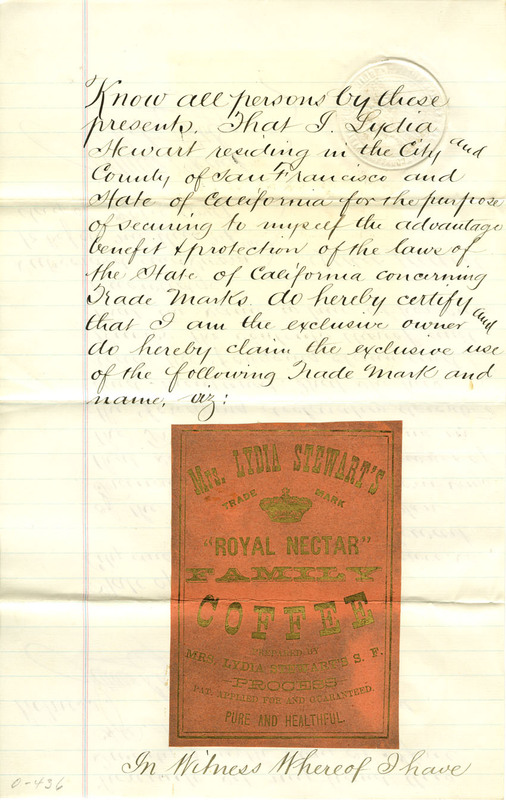 Know all persons by these
presents, That I, Lydia
Stewart residing in the City and
County of San Francisco and
State of California for the purpose
of securing to myself the advantage
benefit & protection of the laws of
the State of California concerning
Trade Marks do hereby certify
that I am the exclusive owner and
do hereby claim the exclusive use
of the following Trade Mark and
name, viz:
MRS. LYDIA STEWART'S
TRADE MARK
"ROYAL NECTAR"
FAMILY
COFFEE
PREPARED BY
MRS. LYDIA STEWART'S S. F.
PROCESS
PAT. APPLIED FOR AND GUARANTEED.
PURE AND HEALTHFUL
In Witness Whereof I have
0-436